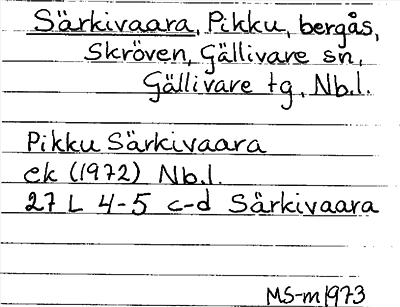 Särkivaara, Pikku, bergås,
Skröven, Gällivare sn,
Gällivare tg, Nb.l.
Pikku Särkivaara
ek (1972) Nb.l.
27 L 4-5 c-d Särkivaara
MS-m 1973